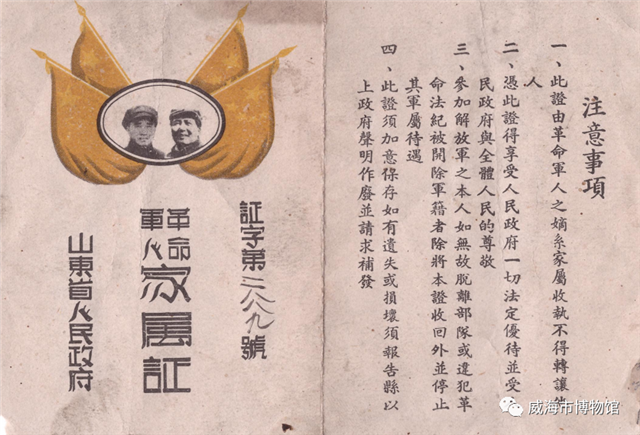 証字第二八八九號
革命
軍人
家屬証
山東省人民政府
注意事項
一、此證由革命軍人之嫡系家屬收執不得轉讓他
人
二、憑此證得享受人民政府一切法定優待並受人
民政府與全體人民的尊敬
三、參加解放軍之本人如無故脫離部隊或違犯革
命法紀被開除軍藉者除將本證收回外並停止
其軍屬待遇
四、此證須加意保存如有遺失或損壞須報告縣以
上政府聲明作廢並請求補發
威海市博物馆